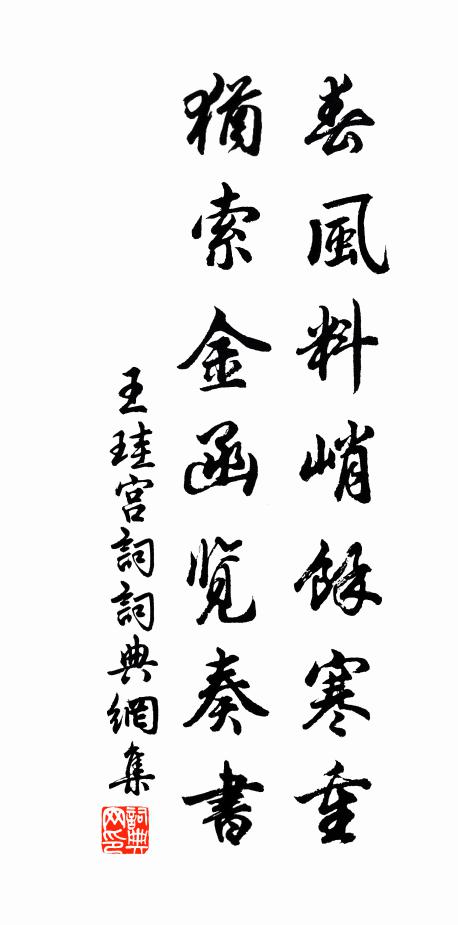 春風料峭餘寒重
猶索金函覽奏書
王珪宫詞詞典網集
詞典網印